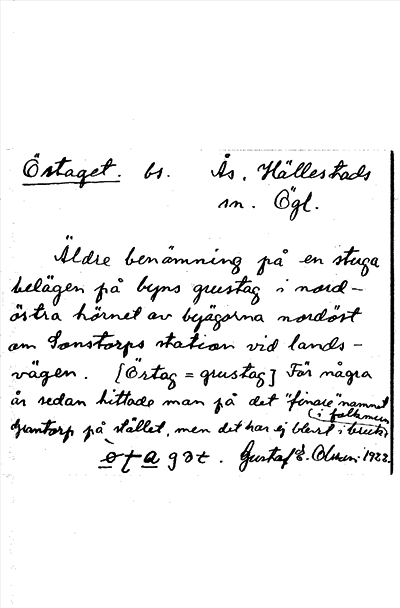 Östaget. bs. Ås, Hällestads
sn. Ögl.
Äldre benämning på en stuga
belägen på byns grustag i nord-
östra hörnet av byägorna nordöst
om Sonstorps station vid lands-
vägen. [Östag = grustag] För några
år sedan hittade man på det "finare" namnet
(i folkmun
Grantorp på stället, men det har ej blivit i bruk.
Gustaf E. Olsson 1922.